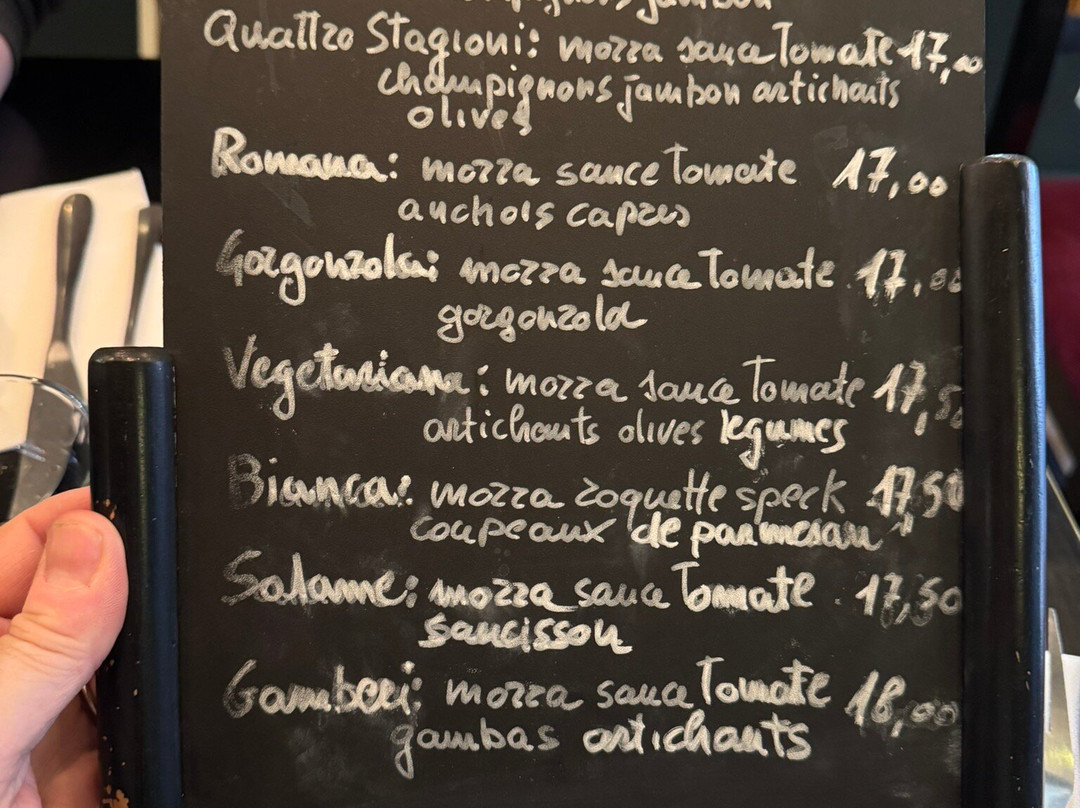 jambon
Quattro Stagioni: mozza sauce Tomate 17,00
champignons jambon artichauts
olives
Romana: mozza sauce Tomate 17,00
anchois capres
Gorgonzola: mozza sauce Tomate 17,00
gorgonzola
Vegetariana: mozza sauce Tomate 17,50
artichauts olives legumes
Bianca: mozza roquette speck 17,50
coupeaux de parmesan
Salame: mozza sauce Tomate 17,50
saucisson
Gamberi: mozza sauce Tomate 18,00
gambas artichauts